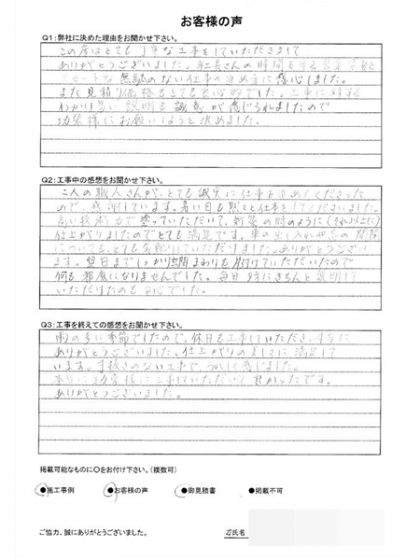 お客様の声
Q1:弊社に決めた理由をお聞かせ下さい。
この度はとても丁寧な工事をしていただきまして
ありがとうございました。社長さんの時間を守る
無駄のない仕事の進め方に感心しました。
また見積り価格もとても良心的でした。工事に対する
わかり易い説明も誠意が感じられましたので
お願いしようと決めました。
Q2:工事中の感想をお聞かせ下さい。
職人さんがとても誠実に仕事を進めてくださった
ので、感謝しています。暑い日も黙々と仕事をしてくださいました。
高い技術力で塗っていただいて、新築の時のように(それ以上に)
仕上がりましたのでとても満足です。車の出し入れや窓の開閉
についても、とても気配りしていただけました。ありがとうござい
ます。翌日までしっかり周りも片付けていただいたので
何も邪魔になりませんでした。毎日 きちんと説明して
いただけたのも安心でした。
Q3:工事を終えての感想をお聞かせ下さい。
雨の多い季節でしたので、休日も工事していただき、本当に
ありがとうございました。仕上がりの美しさに満足して
います。手抜きのない工事で、感じました。
本当に 様に工事していただいて良かったです。
ありがとうございました。
掲載可能なものに〇をお付け下さい。(複数可)
●施工事例 ●お客様の声 ●御見積書 ●掲載不可
ご協力、誠にありがとうございました。 ご氏名